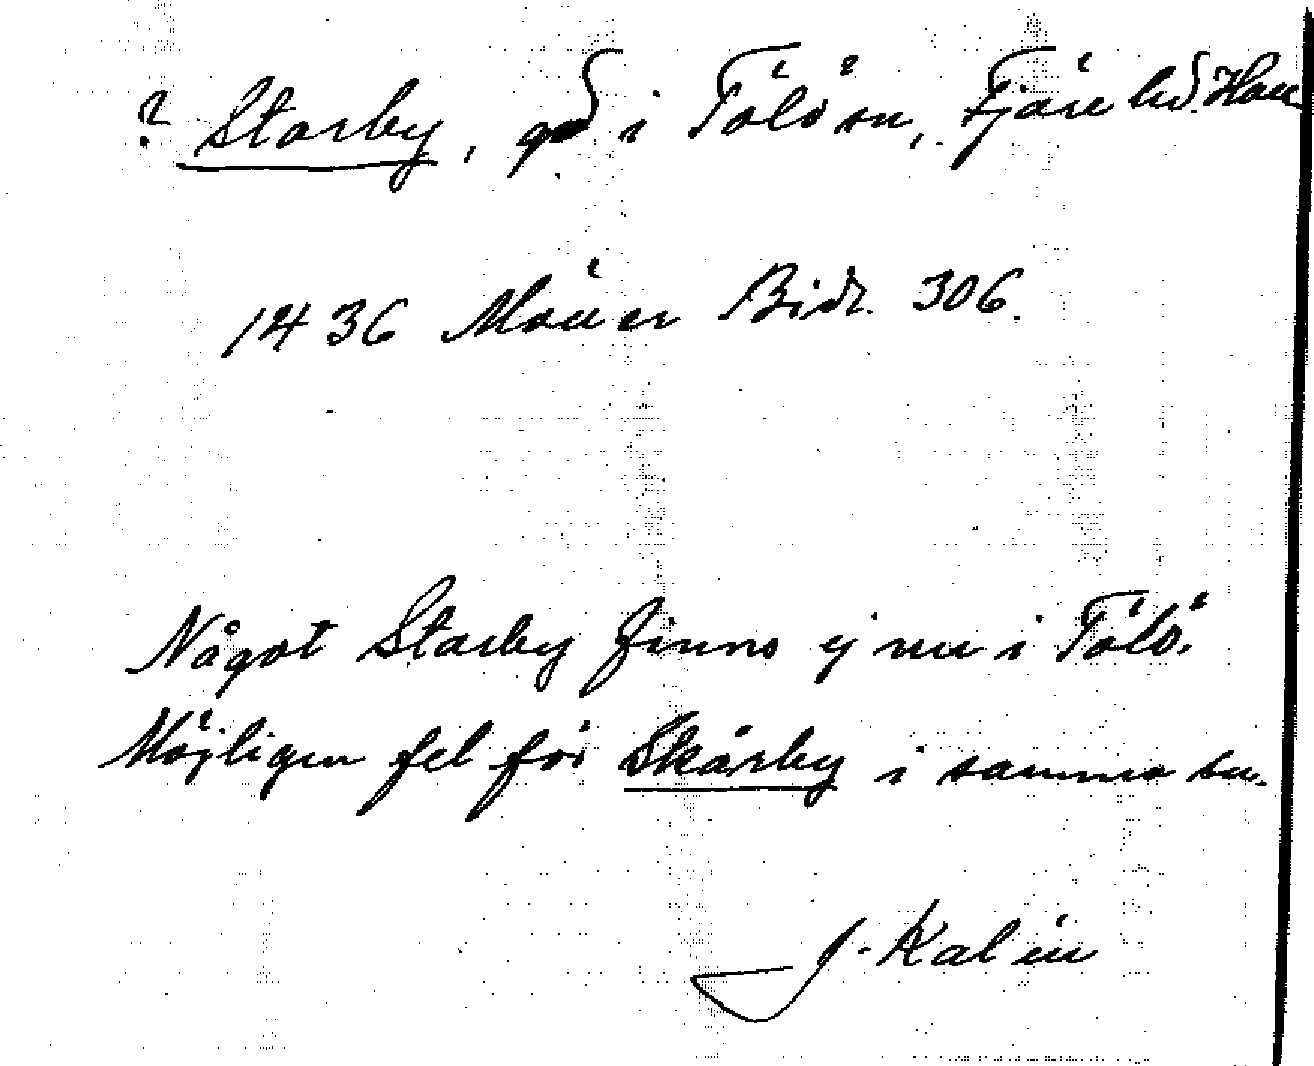 ? Starby, gd i Tölö sn, Fjäre hd. Hall
1436 Möller Bidr. 306.
Något Starby finns ej nu i Tölö.
Möjligen fel för Skårby i samma sn.
J. Kalén